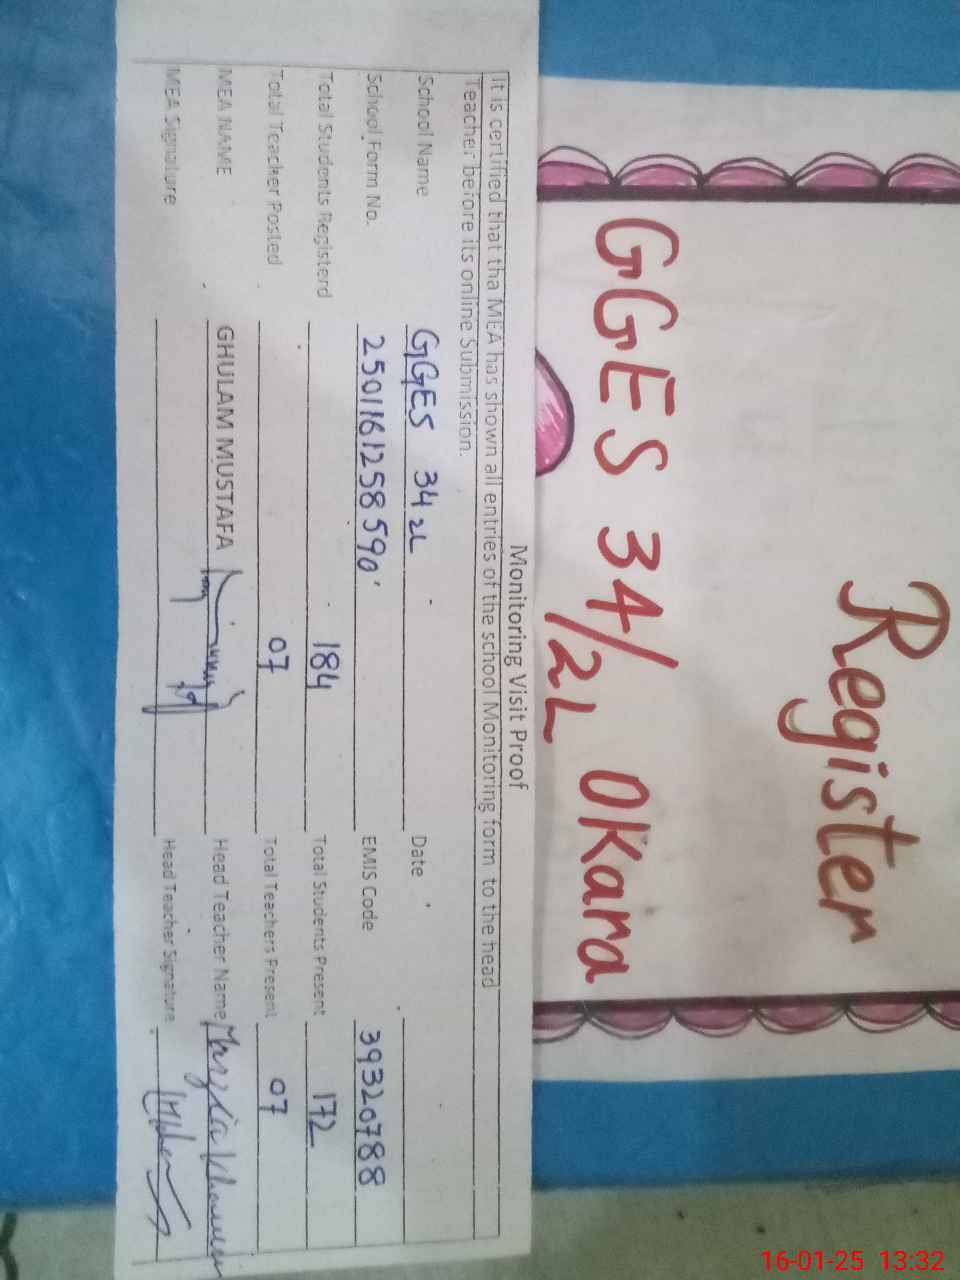 Register
GGES 34/2L OKara
Monitoring Visit Proof
It is certified that tha MEA has shown all entries of the school Monitoring form to the head
Teacher before its online Submission.
School Name GGES 34 2L Date
School Form No. 2501161258590 EMIS Code 39320788
Total Students Registerd 184 Total Students Present 172
Total Teacher Posted 07 Total Teachers Present 07
MEA NAME GHULAM MUSTAFA Head Teacher Name
MEA Signature Head Teacher Signature
16-01-25 13:32